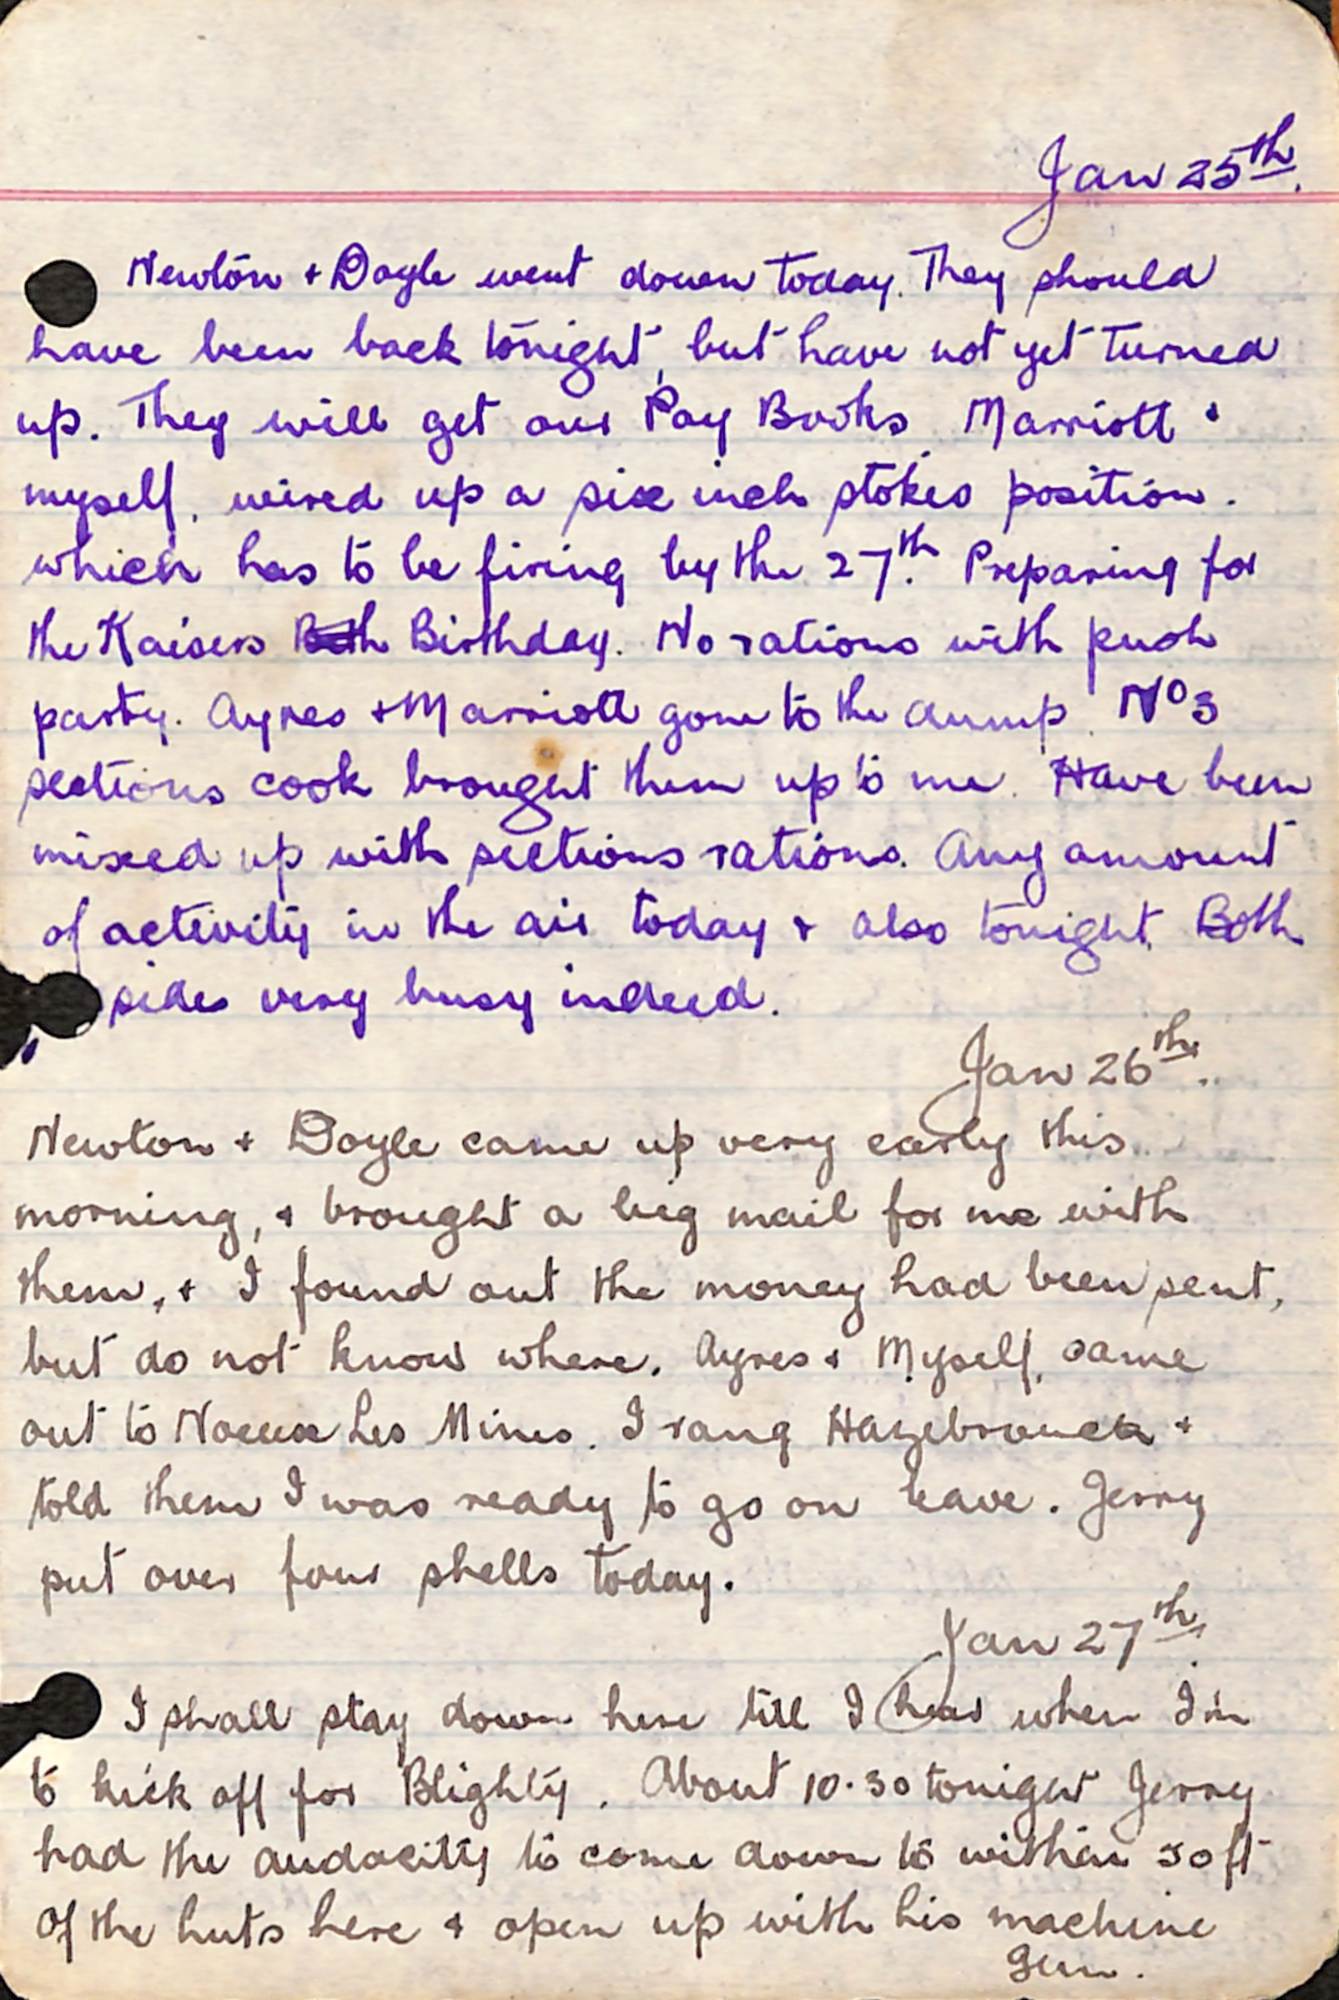 Jan 25th.
Newton + Doyle went down today. They should
have been back tonight, but have not yet turned
up. They will get our Pay Books. Marriott +
myself, wired up a six inch stokes position.
which has to be firing by the 27th. Preparing for
the Kaisers Birthday. No rations with push
party. Ayres + Marriott gone to the dump. No 3
sections cook brought them up to me. Have been
mixed up with sections rations. Any amount
of activity in the air today + also tonight. Both
sides very busy indeed.
Jan 26th.
Newton + Doyle came up very early this
morning, + brought a big mail for me with
them, + I found out the money had been sent,
but do not know where. Ayres + Myself, came
out to Noeux Les Mines. I rang Hazebrouck +
told them I was ready to go on leave. Jerry
put over four shells today.
Jan 27th.
I shall stay down here till I hear when I'm
to kick off for Blighty. About 10.30 tonight Jerry
had the audacity to come down to within 50ft
of the huts here + open up with his machine
gun.